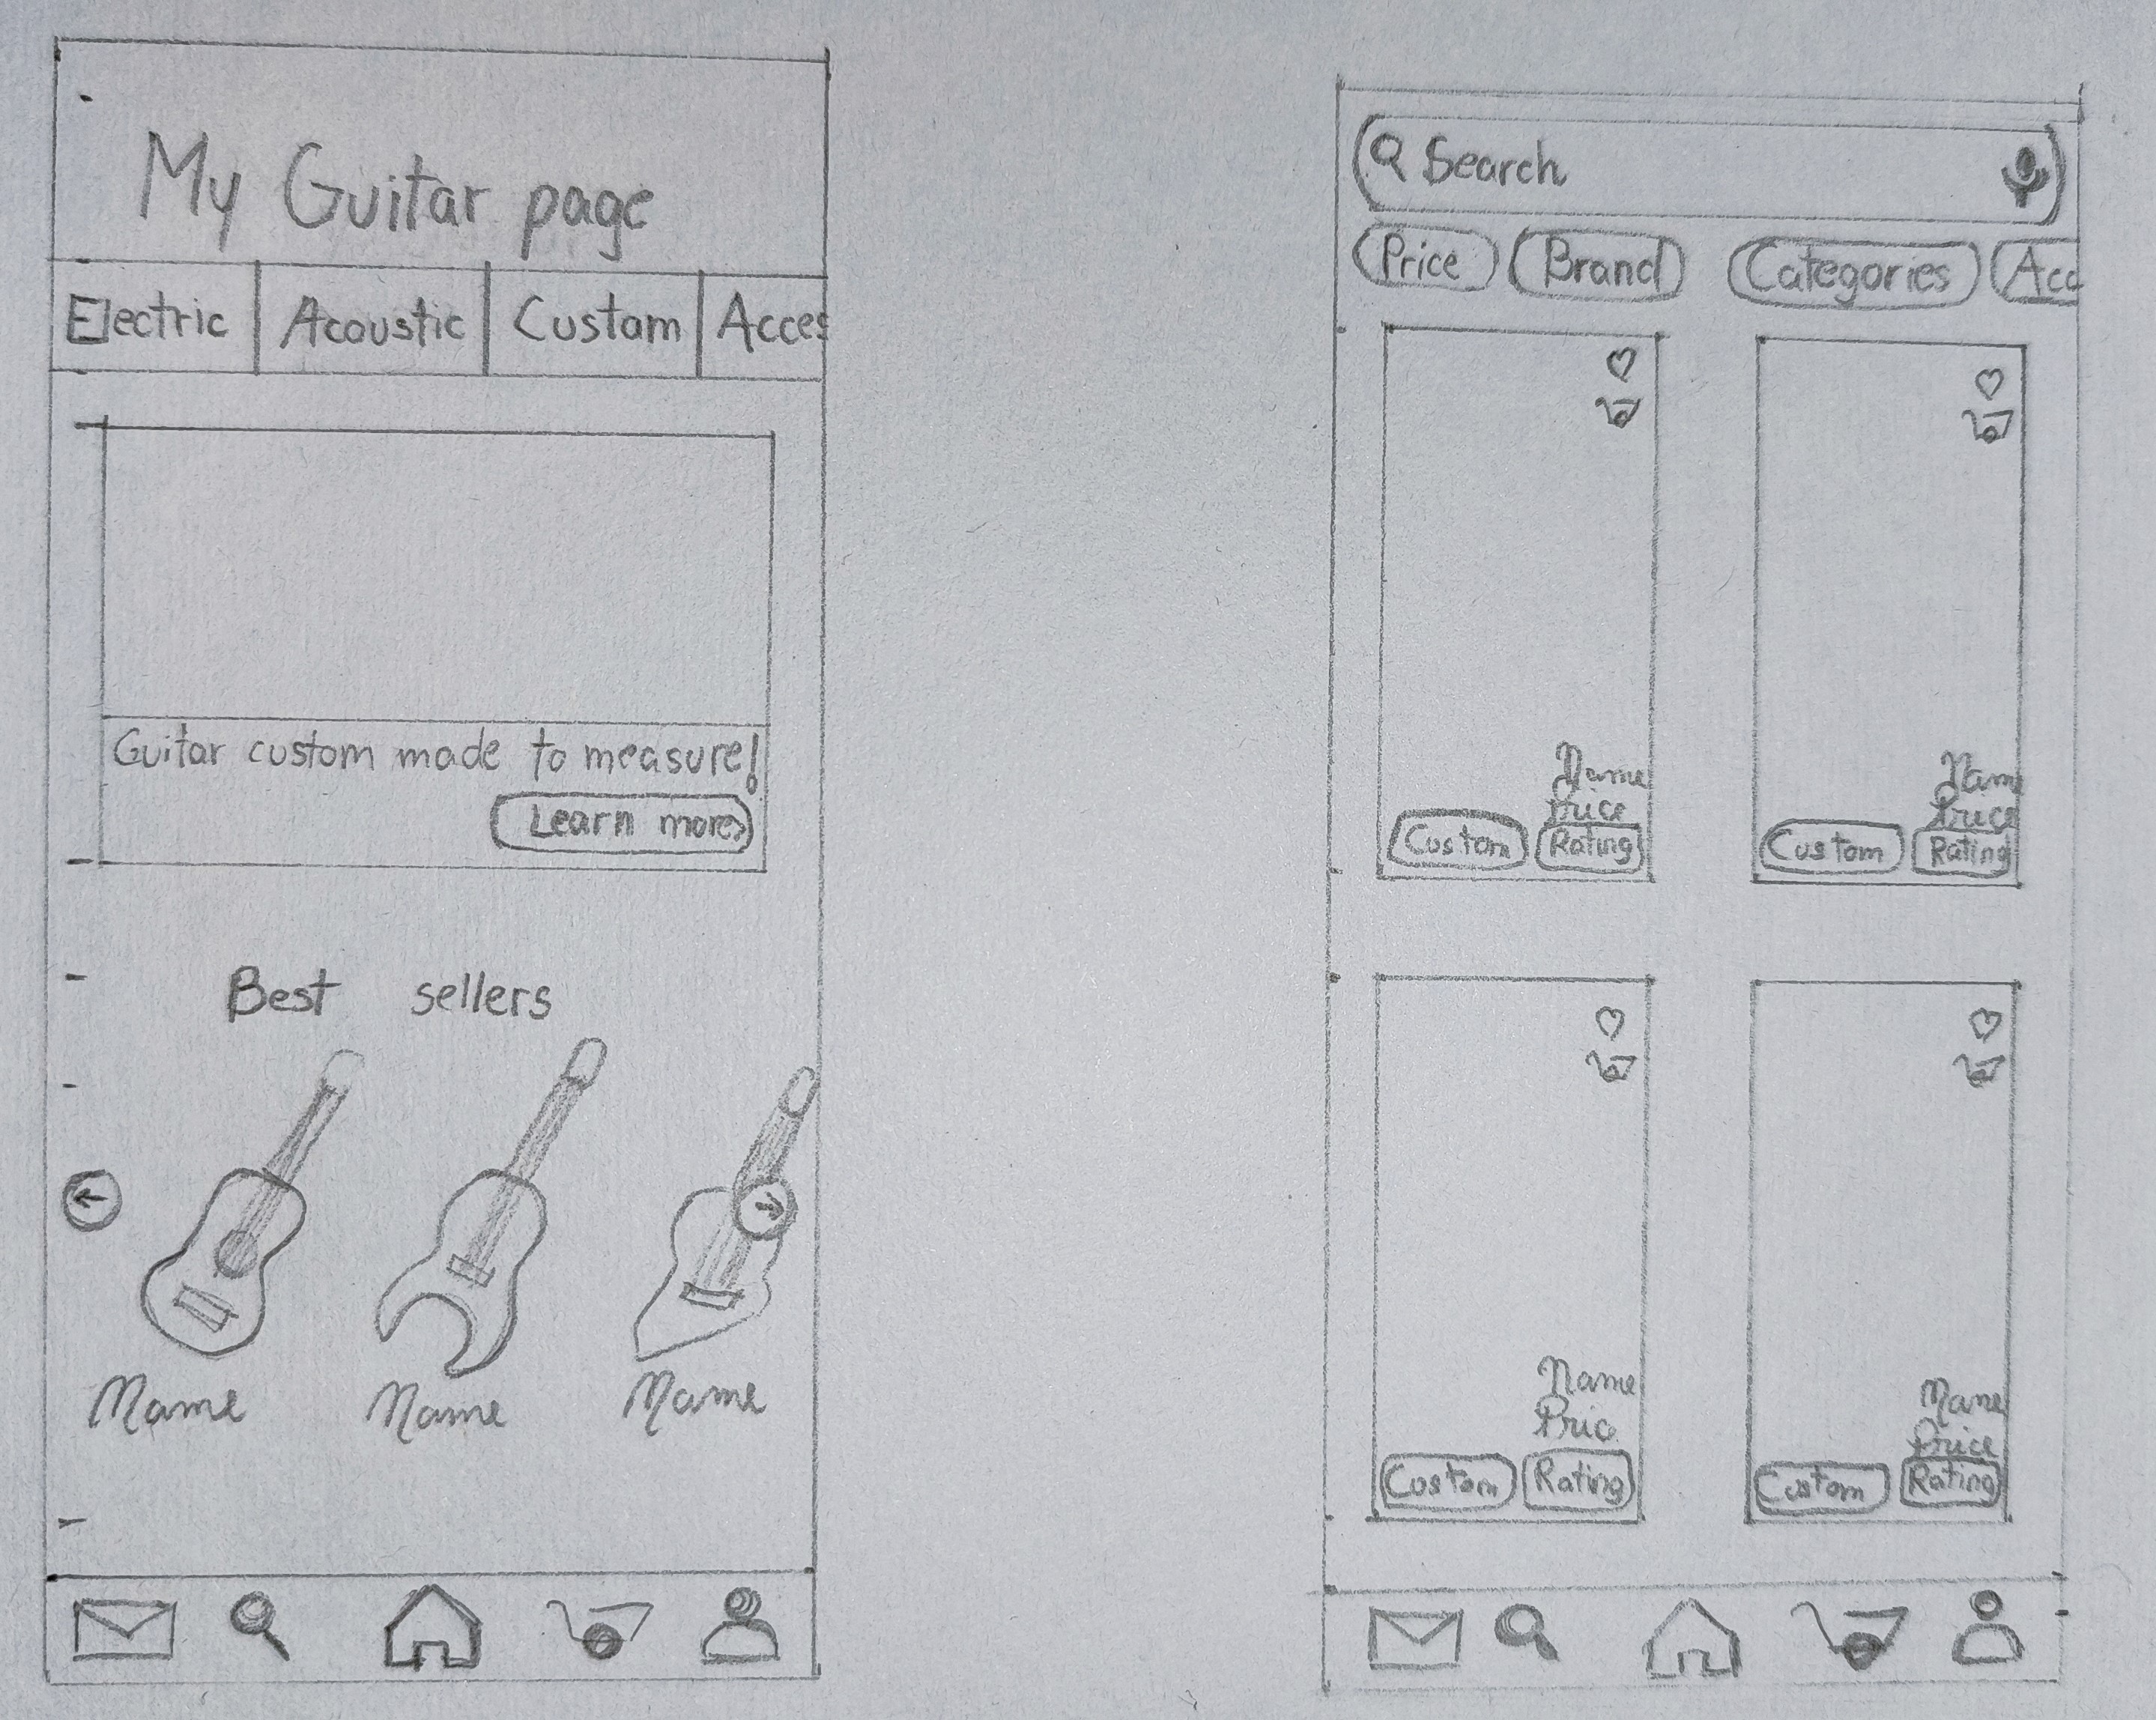 My Guitar page
Electric Acoustic Custom Acces
Guitar custom made to measure!
Learn more>
Best sellers
Name Name Name
Search
Price Brand Categories Acc
Name
Price
Custom Rating
Nam
Price
Custom Rating
Name
Pric
Custom Rating
Name
Price
Custom Rating